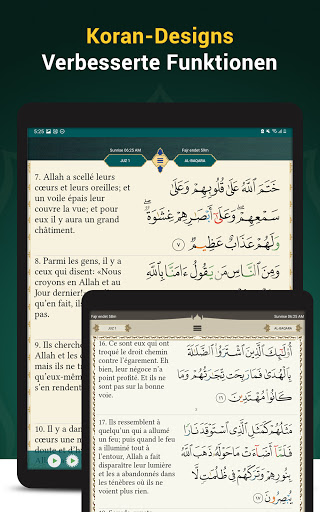 Koran-Designs
Verbesserte Funktionen
5:25
Sunrise 06:25 AM
Fajr endet 59m
JUZ 1
AL-BAQARA
7. Allah a scellé leurs
cœurs et leurs oreilles; et
un voile épais leur
couvre la vue; et pour
eux il y aura un grand
châtiment.
خَتَمَ ٱللَّهُ عَلَىٰ قُلُوبِهِمْ وَعَلَىٰ
سَمْعِهِمْ ۖ وَعَلَىٰٓ أَبْصَٰرِهِمْ غِشَٰوَةٌ ۖ
وَلَهُمْ عَذَابٌ عَظِيمٌ ٧
8. Parmi les gens, il y a
ceux qui disent: «Nous
croyons en Allah et au
Jour dernier!
en fait, ils
وَمِنَ ٱلنَّاسِ مَن يَقُولُ ءَامَنَّا بِٱللَّهِ
9. Ils cherche
Allah et les
qu'eux-mêm
s'en rendent
10. Il y a dan
cœurs une m
Fajr endet 59m
Sunrise 06:25 AM
JUZ 1
AL-BAQARA
16. Ce sont eux qui ont
troqué le droit chemin
contre l'égarement. Eh
bien, leur négoce n'a
point profité. Et ils ne
sont pas sur la bonne
voie.
أُو۟لَٰٓئِكَ ٱلَّذِينَ ٱشْتَرَوُا۟ ٱلضَّلَٰلَةَ
بِٱلْهُدَىٰ فَمَا رَبِحَت تِّجَٰرَتُهُمْ وَمَا
كَانُوا۟ مُهْتَدِينَ ١٦
17. Ils ressemblent à
quelqu'un qui a allumé
un feu; puis quand le feu
a illuminé tout à
l'entour, Allah a fait
disparaître leur lumière
et les a abandonnés dans
les ténèbres où ils ne
voient plus rien.
مَثَلُهُمْ كَمَثَلِ ٱلَّذِى ٱسْتَوْقَدَ نَارًا
فَلَمَّآ أَضَآءَتْ مَا حَوْلَهُۥ ذَهَبَ ٱللَّهُ
بِنُورِهِمْ وَتَرَكَهُمْ فِى ظُلُمَٰتٍ لَّا
يُبْصِرُونَ ١٧